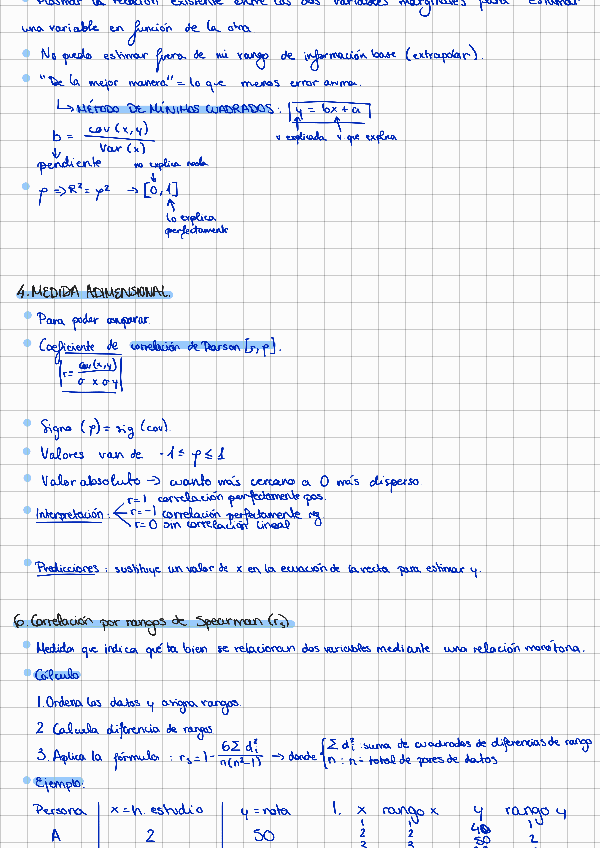 Plasmar la relación existente entre las dos variables marginales para estimar
una variable en función de la otra
No puedo estimar fuera de mi rango de información base (extrapolar).
"De la mejor manera" = lo que menos error arroja.
↳ MÉTODO DE MÍNIMOS CUADRADOS: y = bx + a
v explicada v que explica
b = cov (x,y) / Var (x)
pendiente
no explica nada
ρ => R² = ρ² → [0,1]
lo explica
perfectamente
4. MEDIDA ADIMENSIONAL.
Para poder comparar.
Coeficiente de correlación de Pearson [r, ρ].
r = cov(x,y) / σ x σ y
Signo (ρ) = sig (cov).
Valores van de -1 ≤ ρ ≤ 1
Valor absoluto → cuanto más cercano a 0 más disperso
Interpretación:
r=1 correlación perfectamente pos.
r=-1 correlación perfectamente ng
r=0 sin correlación lineal
Predicciones: sustituye un valor de x en la ecuación de la recta para estimar y.
6 Correlación por rangos de Spearman (rs)
Medida que indica qué ta bien se relacionan dos variables mediante una relación monótona.
Cálculo
1. Ordena los datos y asigna rangos.
2 Calcula diferencia de rangos
3. Aplica la fórmula: rs = 1 - 6Σ di² / n(n²-1) → donde { Σ di²: suma de cuadrados de diferencias de rango
n: n = total de pares de datos
Ejemplo:
Persona x = h. estudio y = nota 1. x rango x y rango y
1 1 40 1
A 2 50 2 2 50 2